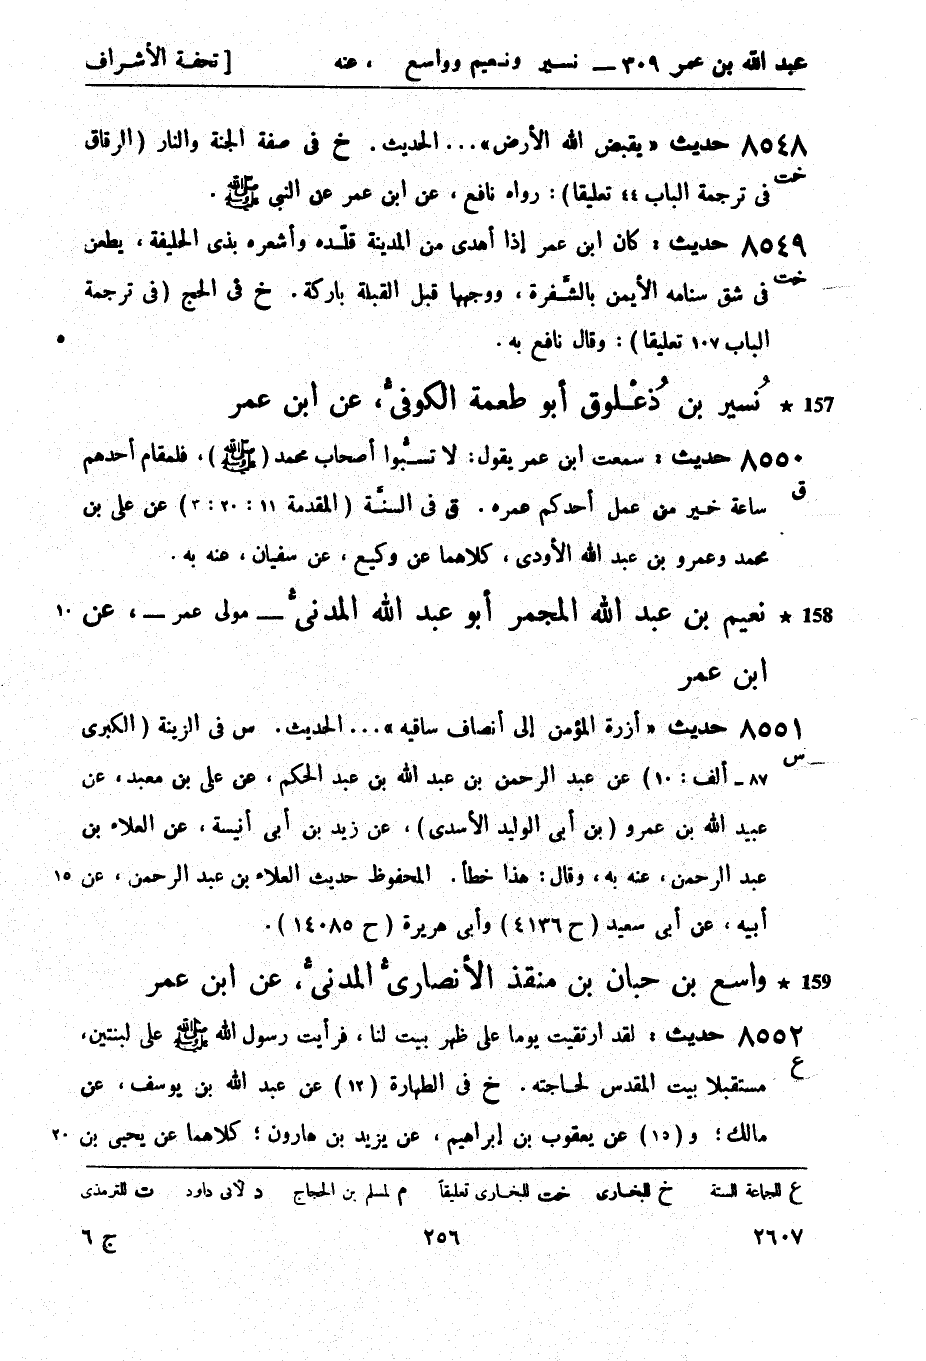 عبد الله بن عمر ٣٠٩ — نسير ونعيم وواسع ، عنه [ تحفة الأشراف
٨٥٤٨ حديث « يقبض الله الأرض» . . . الحديث . خ فى صفة الجنة والنار ( الرقاق
خت فى ترجمة الباب ٤٤ تعليقا ) : رواه نافع ، عن ابن عمر عن النبى ﷺ .
٨٥٤٩ حديث : كان ابن عمر إذا أهدى من المدينة قلّده وأشعره بذى الحليفة ، يطعن
خت فى شق سنامه الأيمن بالشَّفرة ، ووجهها قبل القبلة باركة . خ فى الحج ( فى ترجمة
الباب ١٠٧ تعليقا ) : وقال نافع به .
157 ★ نُسير بن ذُعْلوق أبو طعمة الكوفىُّ، عن ابن عمر
٨٥٥٠ حديث : سمعت ابن عمر يقول : لا تسبُّوا أصحاب محمد ( ﷺ ) ، فلمقام أحدهم
ق ساعة خير من عمل أحدكم عمره . ق فى السنَّة ( المقدمة ١١ : ٢٠ : ٣ ) عن على بن
محمد وعمرو بن عبد الله الأودى ، كلاهما عن وكيع ، عن سفيان ، عنه به .
158 ★ نعيم بن عبد الله المجمر أبو عبد الله المدنىُّ — مولى عمر — ، عن ١٠
ابن عمر
٨٥٥١ حديث « أزرة المؤمن إلى أنصاف ساقيه » . . . الحديث . س فى الزينة ( الكبرى
س ٨٧ - ألف : ١٠ ) عن عبد الرحمن بن عبد الله بن عبد الحكم ، عن على بن معبد ، عن
عبيد الله بن عمرو ( بن أبى الوليد الأسدى ) ، عن زيد بن أبى أنيسة ، عن العلاء بن
عبد الرحمن ، عنه به ، وقال : هذا خطأ . المحفوظ حديث العلاء بن عبد الرحمن ، عن ١٥
أبيه ، عن أبى سعيد ( ح ٤١٣٦ ) وأبى هريرة ( ح ١٤٠٨٥ ) .
159 ★ واسع بن حبان بن منقذ الأنصارىُّ المدنىُّ، عن ابن عمر
٨٥٥٢ حديث : لقد ارتقيت يوما على ظهر بيت لنا ، فرأيت رسول الله ﷺ على لبنتين،
ع مستقبلا بيت المقدس لحاجته . خ فى الطهارة ( ١٢ ) عن عبد الله بن يوسف ، عن
مالك ؛ و ( ١٥ ) عن يعقوب بن إبراهيم ، عن يزيد بن هارون ؛ كلاهما عن يحيى بن ٢٠
ع للجماعة الستة خ للبخارى خت للبخارى تعليقاً م لمسلم بن الحجاج د لأبى داود ت للترمذى
٢٦٠٧ ٢٥٦ ج ٦